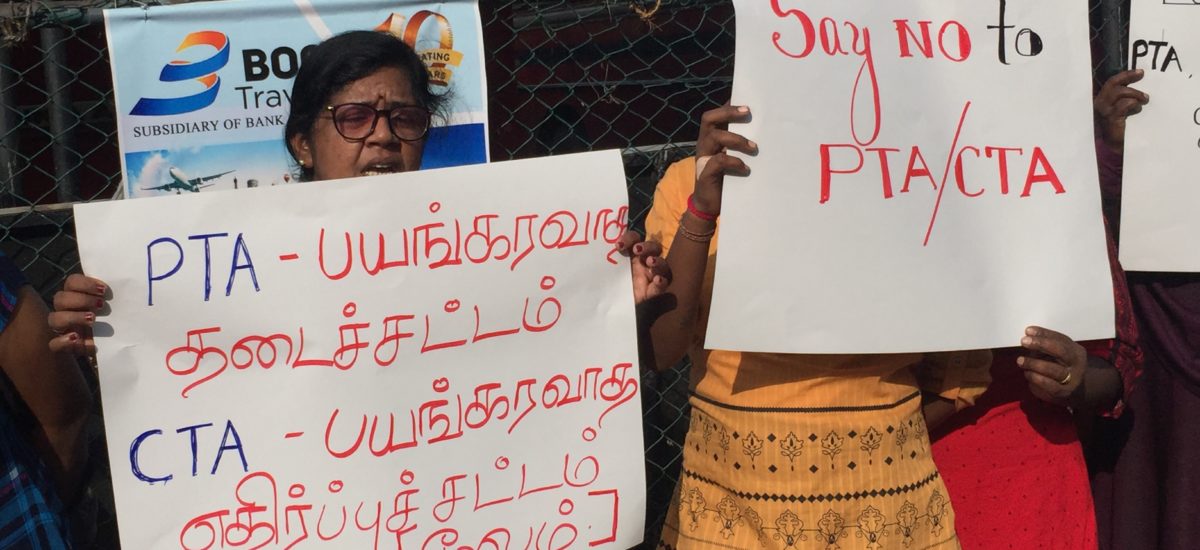 BOC
Trav
SUBSIDIARY OF BANK
10
PTA - பயங்கரவாத
தடைச்சட்டம்
CTA - பயங்கரவாத
எதிர்ப்புச் சட்டம்
Say NO to
PTA/CTA
PTA,